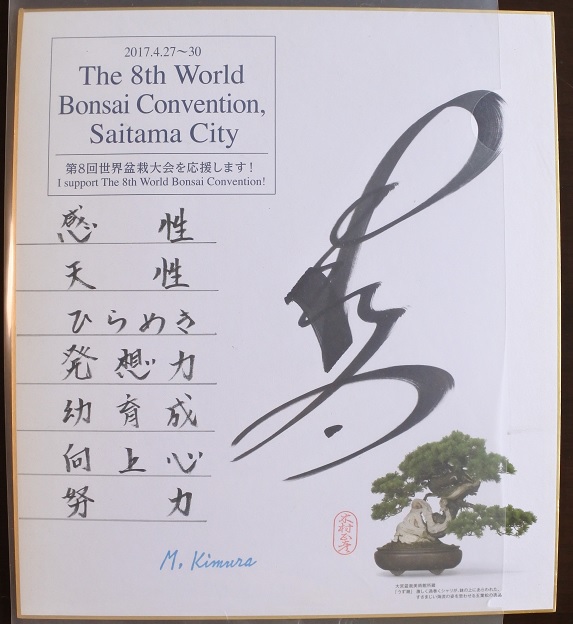 2017.4.27〜30
The 8th World
Bonsai Convention,
Saitama City
第8回世界盆栽大会を応援します！
I support The 8th World Bonsai Convention!
感性
天性
ひらめき
発想力
幼育成
向上心
努力
M. Kimura